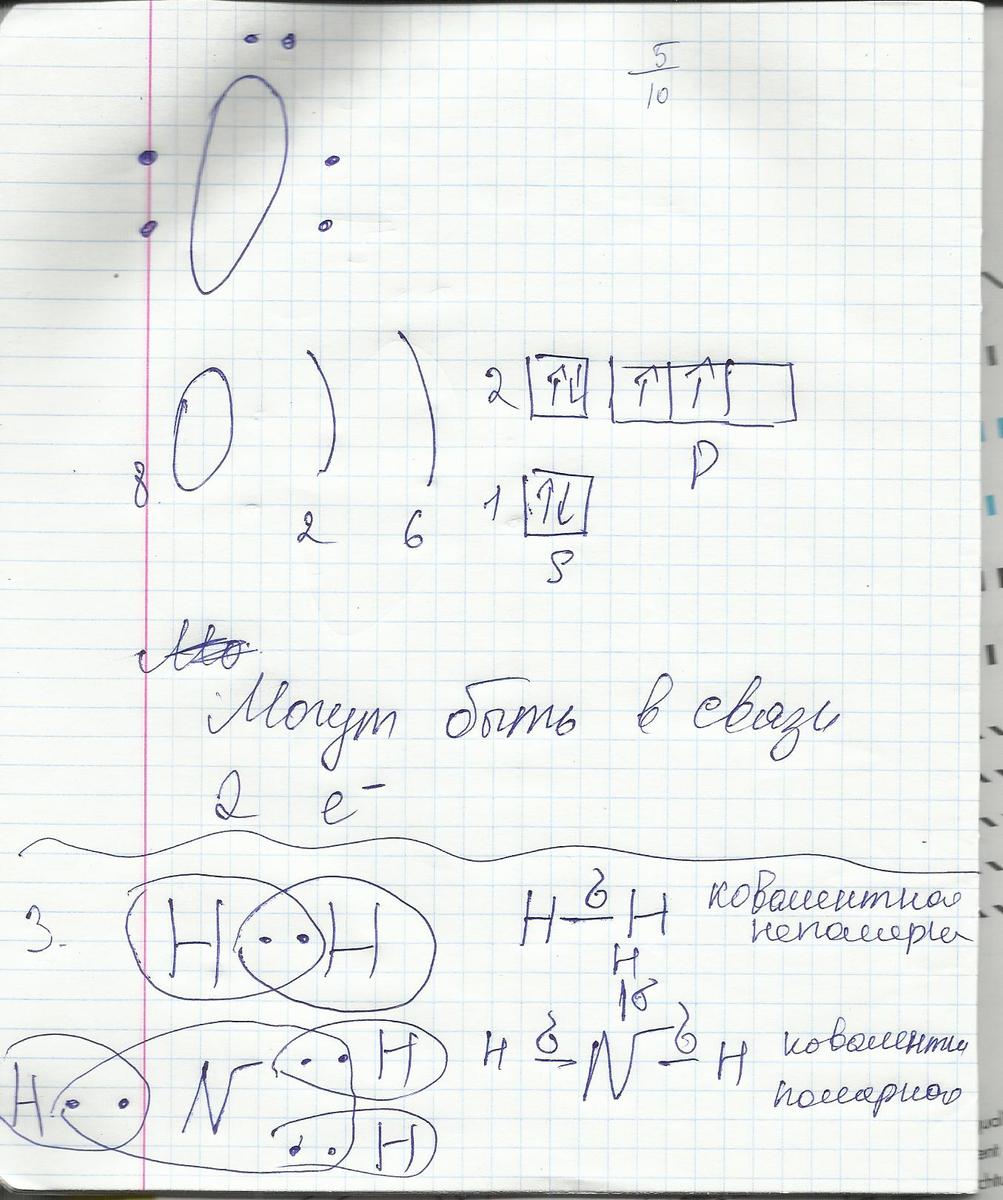 5/10
O
8 O ) ) 2 ↑↓ ↑ ↑
2 6 1 ↑↓ p
s
Могут быть в связи
2 e⁻
3. H H H σ H ковалентная
неполярная
H
σ
H N H H σ N σ H ковалентн
H полярная